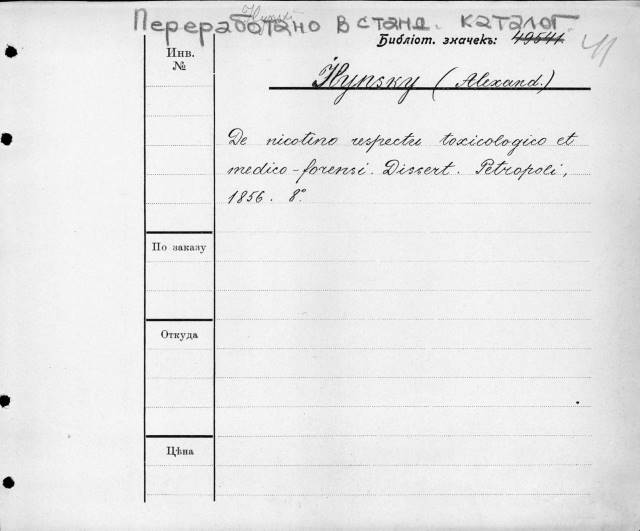 Переработано в станд. каталог
Библіот. значекъ: 49541
Инв. №
Ilynsky (Alexand.)
De nicotino respectu toxicologico et
medico-forensi. Dissert. Petropoli,
1856. 8°.
По заказу
Откуда
Цѣна